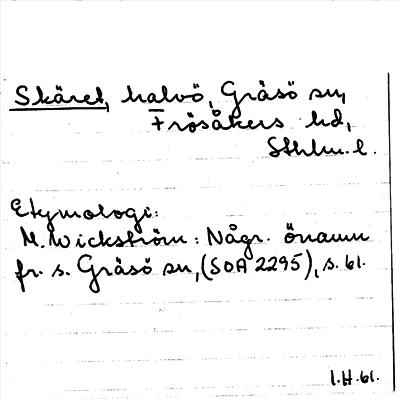 Skäret, halvö, Gräsö sn,
Frösåkers hd,
Sthlm. l.
Etymologi:
M. Wickström: Några. önamn
fr. s. Gräsö sn, (SOA 2295), s. 61.
I.H. 61.